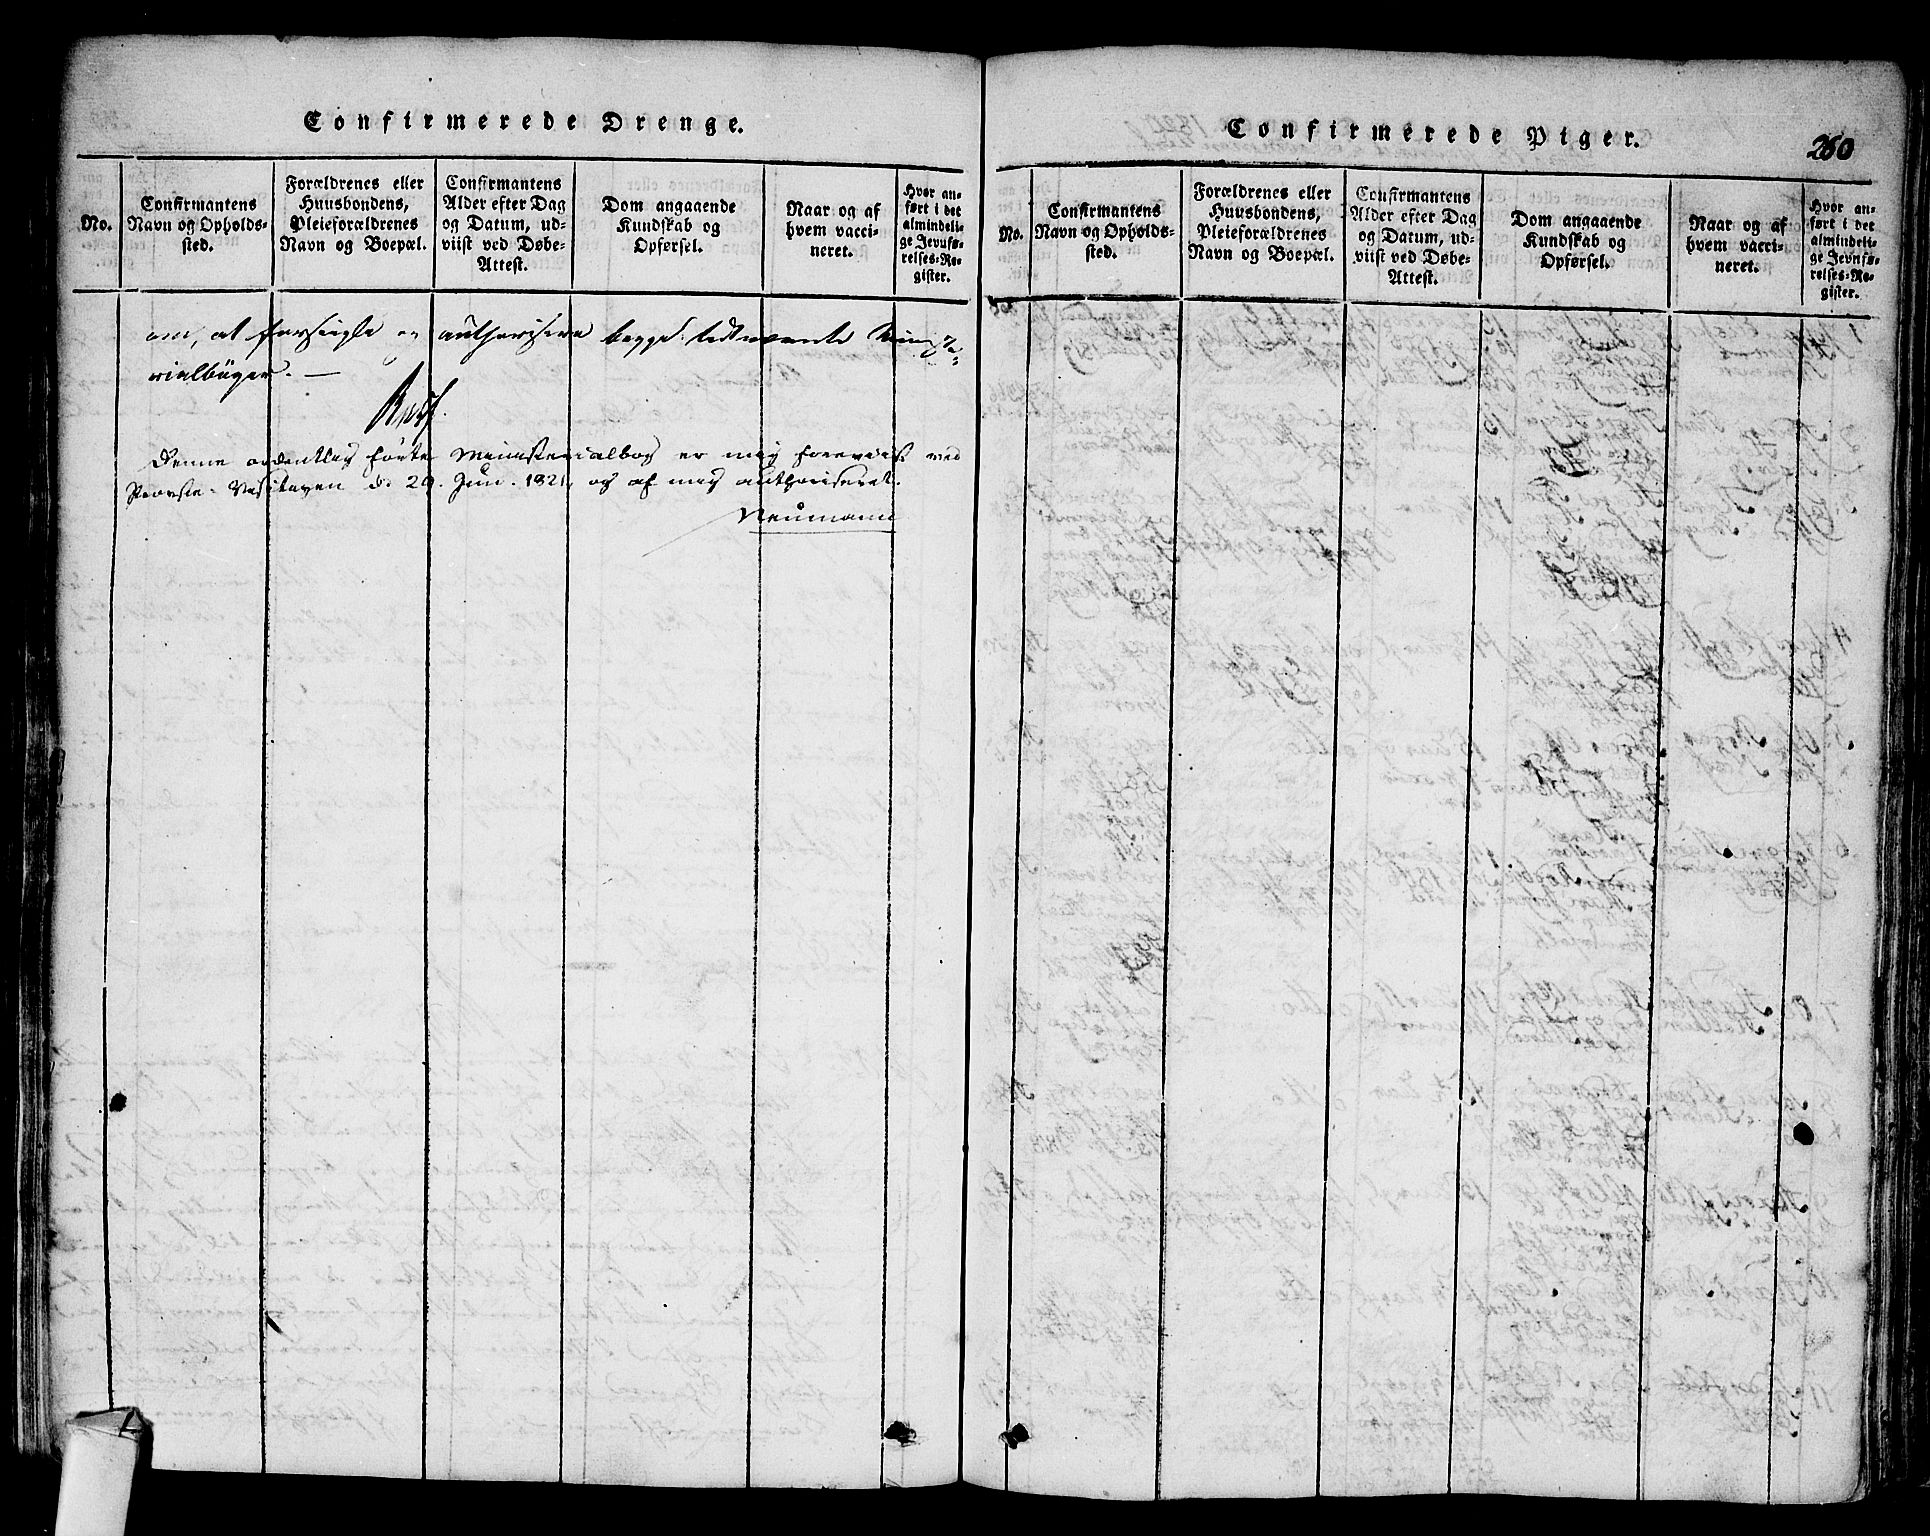 Confirmerede Drenge.
No.
Confirmantens
Navn og Opholds-
sted.
Forældrenes eller
Huusbondens,
Pleieforældrenes
Navn og Boepæl.
Confirmantens
Alder efter Dag
og Datum, ud-
viist ved Døbe-
Attest.
Dom angaaende
Kundskab og
Opførsel.
Naar og af
hvem vacci-
neret.
Hvor an-
ført i det
almindeli-
ge Jevnfø-
relses-Re-
gister.
om, at forsegle og authorisere begge
rialbøger. —
Denne ordentlig førte Ministerialbog er mig foreviist ved
Provste-Visitatsen d. 29. Jun. 1821, og af mig authoriseret.
Neumann
Confirmerede Piger.
260
No.
Confirmantens
Navn og Opholds-
sted.
Forældrenes eller
Huusbondens,
Pleieforældrenes
Navn og Boepæl.
Confirmantens
Alder efter Dag
og Datum, ud-
viist ved Døbe-
Attest.
Dom angaaende
Kundskab og
Opførsel.
Naar og af
hvem vacci-
neret.
Hvor an-
ført i det
almindeli-
ge Jevnfø-
relses-Re-
gister.